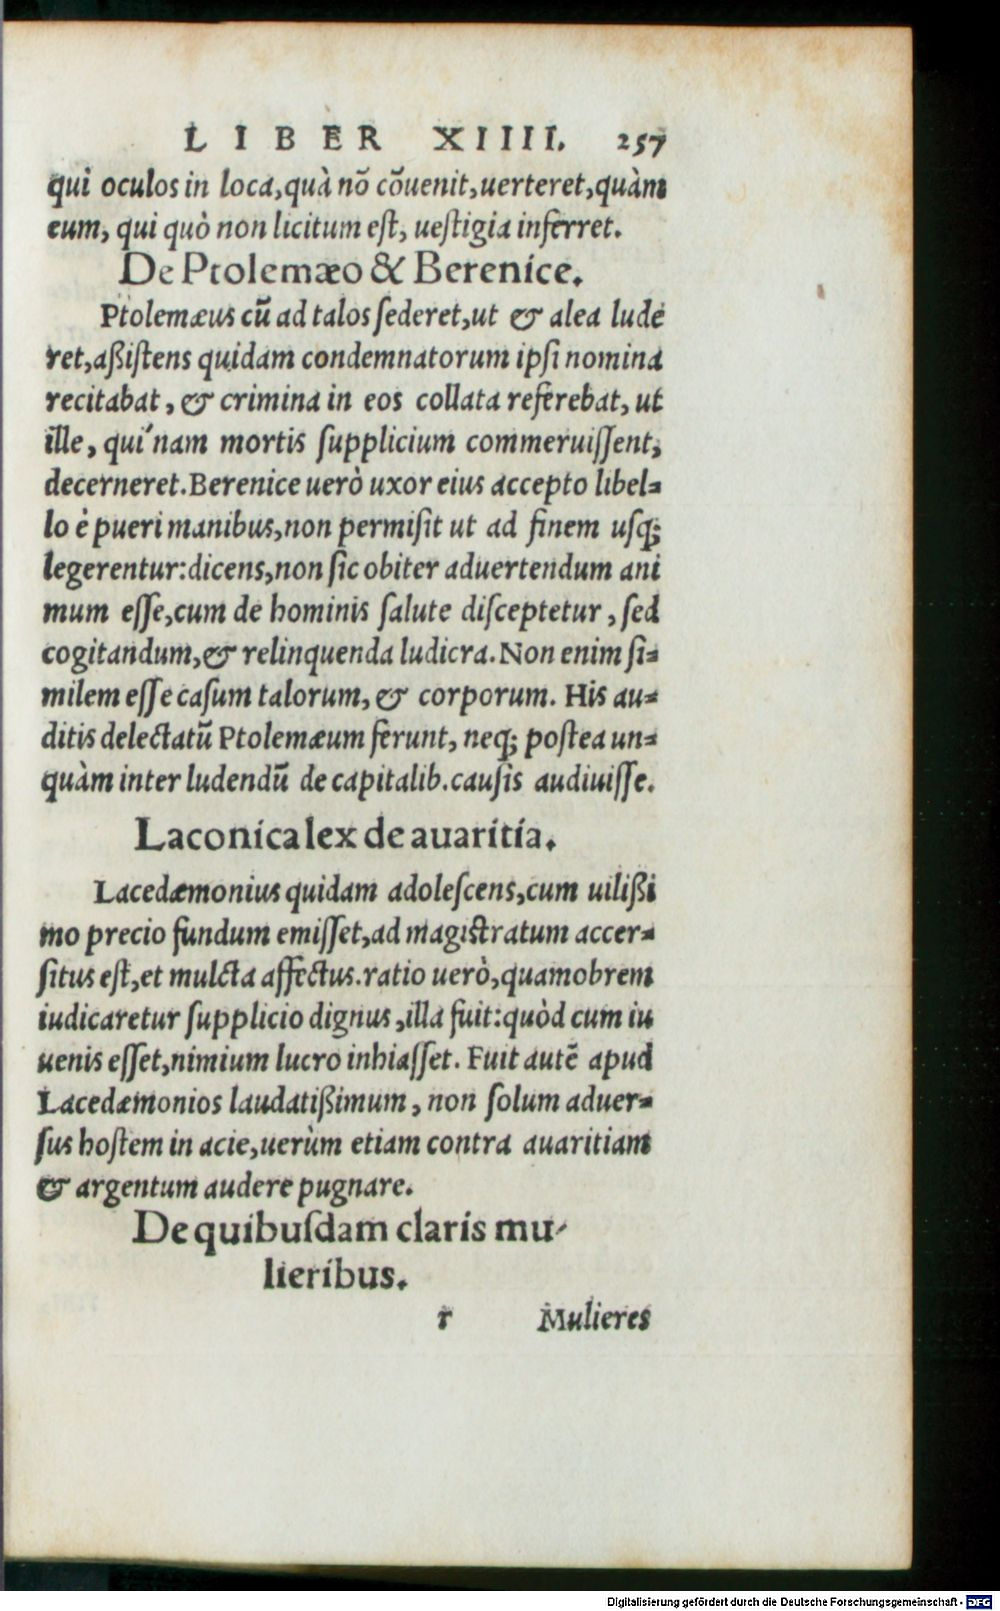 LIBER XIIII. 257
qui oculos in loca,quà nõ cõuenit,uerteret,quàm
eum, qui quò non licitum eſt, ueſtigia inferret.
De Ptolemæo & Berenice.
Ptolemæus cũ ad talos ſederet,ut & alea lude
ret,aßiſtens quidam condemnatorum ipſi nomina
recitabat, & crimina in eos collata referebat, ut
ille, qui'nam mortis ſupplicium commeruiſſent,
decerneret. Berenice uerò uxor eius accepto libel-
lo è pueri manibus,non permiſit ut ad finem uſq;
legerentur:dicens,non ſic obiter aduertendum ani
mum eſſe,cum de hominis ſalute diſceptetur, ſed
cogitandum,& relinquenda ludicra. Non enim ſi-
milem eſſe caſum talorum, & corporum. His au-
ditis delectatũ Ptolemæum ferunt, neq; poſtea un-
quàm inter ludendũ de capitalib. cauſis audiuiſſe.
Laconica lex de auaritia.
Lacedæmonius quidam adoleſcens,cum uilißi
mo precio fundum emiſſet,ad magiſtratum accer-
ſitus eſt,et mulcta affectus.ratio uerò,quamobrem
iudicaretur ſupplicio dignus,illa fuit:quòd cum iu
uenis eſſet,nimium lucro inhiaſſet. Fuit autẽ apud
Lacedæmonios laudatißimum, non ſolum aduer-
ſus hoſtem in acie,uerùm etiam contra auaritiam
& argentum audere pugnare.
De quibuſdam claris mu-
lieribus.
r Mulieres
Digitalisierung gefördert durch die Deutsche Forschungsgemeinschaft - DFG